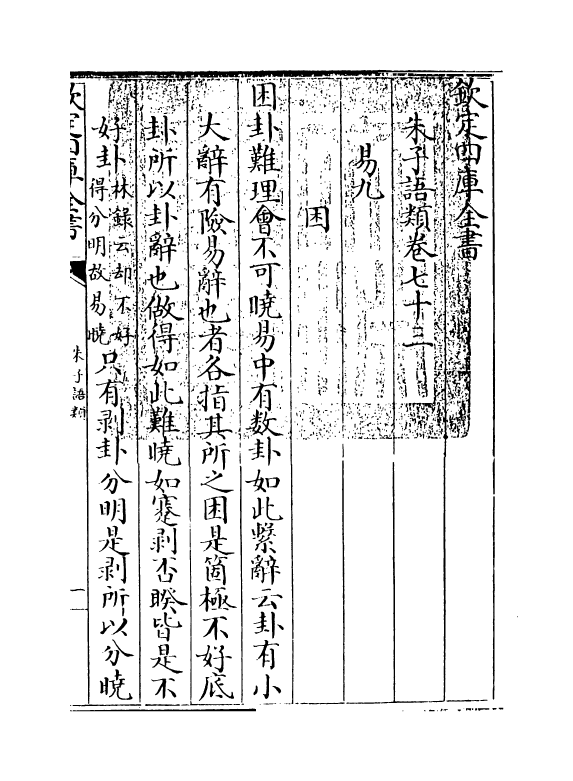 欽定四庫全書
朱子語類卷七十三
易九
困
困卦難理會不可曉易中有數卦如此繫辭云卦有小
大辭有險易辭也者各指其所之困是箇極不好底
卦所以卦辭也做得如此難曉如蹇剥否睽皆是不
好卦林錄云却不好得分明故易曉只有剥卦分明是剥所以分曉
欽定四庫全書
朱子語類
一